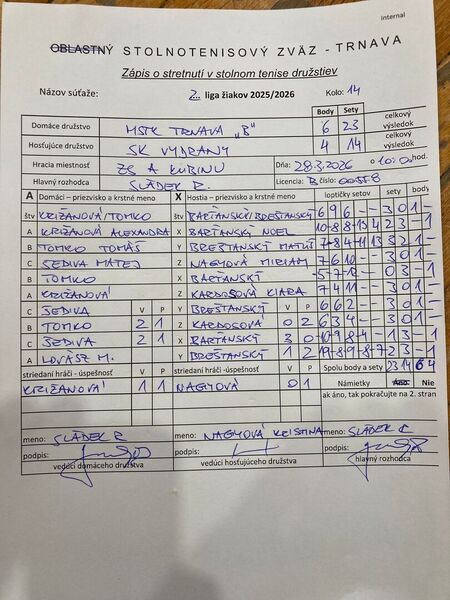 internal
OBLASTNÝ STOLNOTENISOVÝ ZVÄZ - TRNAVA
Zápis o stretnutí v stolnom tenise družstiev
Názov súťaže: 2. liga žiakov 2025/2026 Kolo: 14
Body Sety celkový výsledok
Domáce družstvo MSTK TRNAVA "B" 6 23
Hosťujúce družstvo SK VYDRANY 4 14 celkový výsledok
Hracia miestnosť ZŠ A KUBINU Dňa: 28.3.2026 o 10:00 hod.
Hlavný rozhodca SLÁDEK R. Licencia: B číslo:
A Domáci - priezvisko a krstné meno X Hostia - priezvisko a krstné meno loptičky setov sety body
štv KRIŽANOVÁ/TOMKO štv BARTANSKÝ/BREŠTANSKÝ 6 9 6 - - 3 0 1 -
A KRIŽANOVÁ ALEXANDRA X BARTANSKÝ NOEL 2 3 - 1
B TOMKO TOMÁŠ Y BREŠTANSKÝ MATÚŠ 3 2 1 -
C ŠEDIVA MATEJ Z NAGYOVÁ MIRIAM 7 6 10 - - 3 0 1 -
B TOMKO X BARTANSKÝ 0 3 - 1
A KRIŽANOVÁ Z KARDOSOVÁ KIARA 7 4 11 - - 3 0 1 -
C ŠEDIVA V P Y BREŠTANSKÝ V P 6 6 2 - - 3 0 1 -
B TOMKO 2 1 Z KARDOSOVÁ 0 2 6 3 4 - - 3 0 1 -
C ŠEDIVA 2 1 X BARTANSKÝ 3 0 1 3 - 1
A LOVÁSZ M. Y BREŠTANSKÝ 1 2 2 3 - 1
striedaní hráči - úspešnosť striedaní hráči - úspešnosť Spolu body a sety 23 14 6 4
KRIŽANOVÁ 1 1 NAGYOVÁ 0 1 Námietky Áno Nie
ak áno, tak pokračujte na 2. stran
meno: SLÁDEK R meno: NAGYOVÁ KRISTINA meno: SLÁDEK R
podpis: podpis: podpis:
vedúci domáceho družstva vedúci hosťujúceho družstva hlavný rozhodca